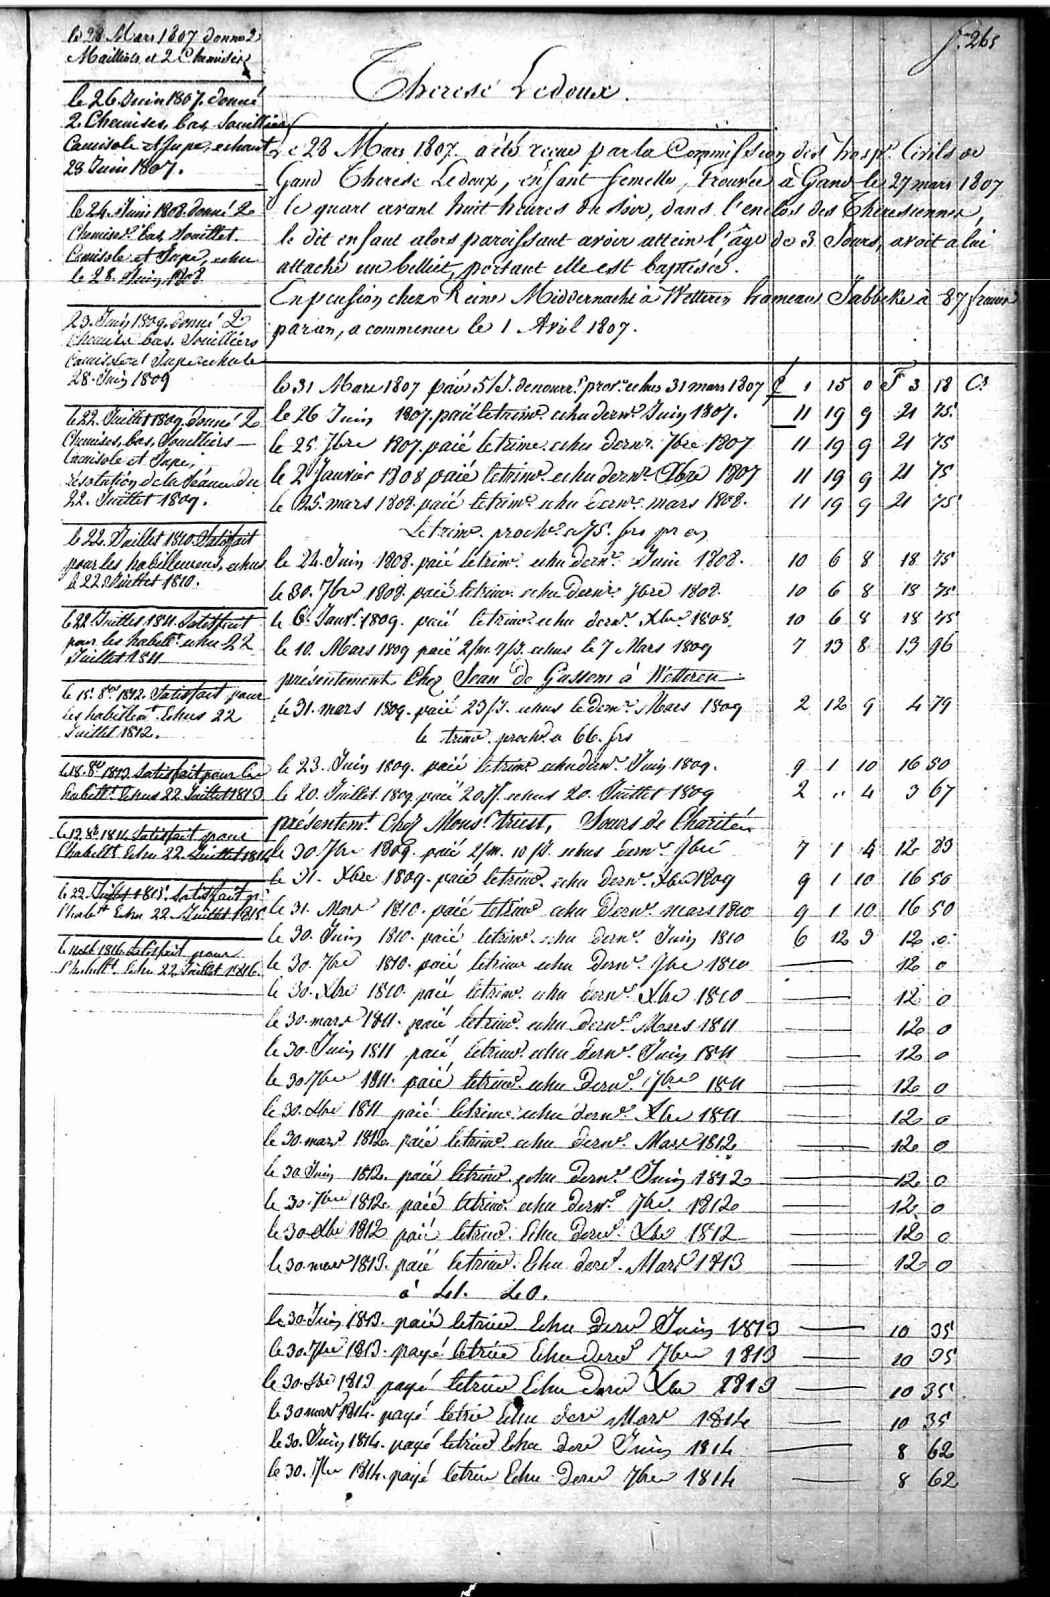 f. 265
Therese Ledoux.
le 28 Mars 1807 donné 2
Maillots et 2 Chemises
le 26 Juin 1807. donné
2 Chemises, bas, Souilliers
Camisole et Jupe, echus
28 Juin 1807.
le 24 Juin 1808. donné 2
Chemises bas, Souillet
Camisole et Jupe, echu
le 28. Juin 1808
23. Juin 1809. donné 2
Chemises bas. Souilliers
Camisole et Jupe echu le
28. Juin 1809
le 22. Juillet 1809. donné 2
Chemises, bas, Souilliers
Camisole et Jupe,
résolution de la Séance du
22. Juillet 1809.
le 22. Juillet 1810. Satisfait
pour les habillemens, echus
le 22. Juillet 1810.
le 22. Juillet 1811. Satisfait
pour les habillt. echu 22
Juillet 1811
le 15. 8re 1812. Satisfait pour
les habillemt. Echus 22
Juillet 1812.
le 18. 8re 1813. Satisfait pour les
habillt. Echus 22 Juillet 1813
le 19. 8re 1814 Satisfait pour
l'habillt. Echu 22. Juillet 1814
le 22. Juillet 1815. Satisfait pr
l'habt. Echu 22. Juillet 1815
1816. Satisfait pour
l'habillt. Echu 22 Juillet 1816.
Le 28 Mars 1807. a été reçue par la Commission des hosp. Civils de
Gand Therese Ledoux, enfant femelle, trouvée à Gand le 27 mars 1807
le quart avant huit heures du soir, dans l'enclos des Theresiennes,
le dit enfant alors paroissant avoir attein l'âge de 3 Jours, avoit a lui
attaché un billiet, portant elle est baptisée.
En pension chez Reine Middernacht à Wetteren hameau Jabbeke à 87 francs
par an, a commencer le 1. Avil 1807.
le 31 Mars 1807 paié 5/J. de nourr. prov. echus 31 mars 1807 £ 1 15 0 F 3 18 Cs
le 26 Juin 1807. paié le trime. echu dernr. Juin 1807. 11 19 9 21 75
le 25. 7bre 1807. paié le trime. echu dernr. 7bre 1807 11 19 9 21 75
le 2 Janvier 1808 paié le trime. echu dernr. Xbre 1807 11 19 9 21 75
le 25. mars 1808. paié le trime. echu dernr. mars 1808. 11 19 9 21 75
Le trime. prochn. a 75. frs pr an
le 24. Juin 1808. paié le trime. echu dernr. Juin 1808. 10 6 8 18 75
le 30. 7bre 1808. paié le trime. echu dernr. 7bre 1808. 10 6 8 18 75
le 6. Janv. 1809. paié le trime. echu dernr. Xbre 1808. 10 6 8 18 75
le 10. Mars 1809 paié 2/m. 7/J. echus le 7 Mars 1809 7 13 8 13 96
présentement Chez Jean De Gussem à Wetteren
le 31. mars 1809. paié 23/J. echus le dernr. Mars 1809 2 12 9 4 79
le trime. prochn. a 66. frs
le 23. Juin 1809. paié le trime. echu dernr. Juin 1809. 9 1 10 16 50
le 20. Juillet 1809 paié 20 J. echus 20. Juillet 1809 2 .. 4 3 67
présentemt. Chez Mons. triest, Sœurs de Charité
le 30 7bre 1809. paié 2/m. 10 J. echus dernr. 7bre 7 1 4 12 83
le 31. Xbre 1809. paié le trime. echu dernr. Xbre 1809 9 1 10 16 50
le 31. Mars 1810. paié le trime. echu dernr. mars 1810 9 1 10 16 50
le 30. Juin 1810. paié le trime. echu dernr. Juin 1810 6 12 3 12 0
le 30. 7bre 1810. paié le trime echu dernr. 7bre 1810 — 12 0
le 30. Xbre 1810. paié le trime. echu dernr. Xbre 1810 — 12 0
le 30. mars 1811. paié le trime. echu dernr. Mars 1811 — 12 0
le 30. Juin 1811 paié le trime. echu dernr. Juin 1811 — 12 0
le 30 7bre 1811. paié le trime. echu Dernr. 7bre 1811 — 12 0
le 30. Xbre 1811 paié le trime. echu dernr. Xbre 1811 — 12 0
le 30. mars 1812. paié le trime. echu dernr. Mars 1812 — 12 0
le 30 Juin 1812. paié le trime. echu dernr. Juin 1812 — 12 0
le 30. 7bre 1812. paié le trime. echu dernr. 7bre 1812 — 12 0
le 30 Xbre 1812 paié le trime. Echu dernr. Xbre 1812 — 12 0
le 30 mars 1813. paié le trime. Echu derr. Mars 1813 — 12 0
à 41. 40.
le 30. Juin 1813. paié le trim Echu derr Juin 1813 — 10 35
le 30. 7bre 1813. payé le trim Echu derr 7bre 1813 — 10 35
le 30. Xbre 1813 payé le trim Echu derr Xbre 1813 — 10 35
le 30 mars 1814. payé le trim Echu derr Mars 1814 — 10 35
le 30. Juin 1814. payé le trim Echu derr Juin 1814 — 8 62
le 30. 7bre 1814. payé le trim Echu derr 7bre 1814 — 8 62